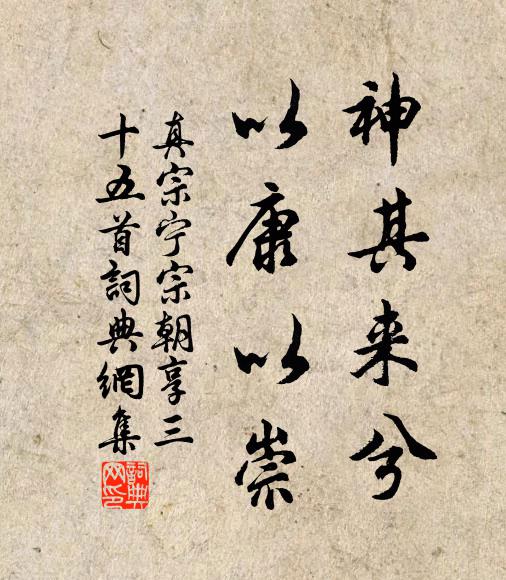 神其来兮
以康以崇
真宗宁宗朝享三
十五首詞典網集
詞典
网印